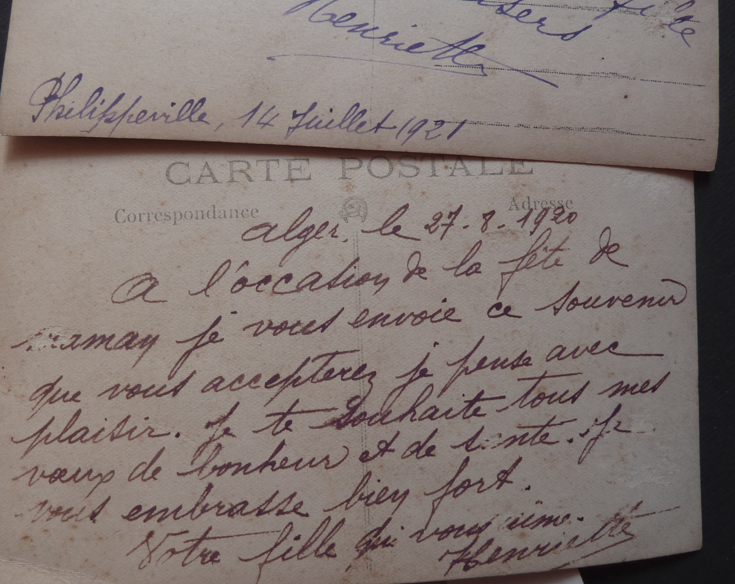 Henriette
Philippeville, 14 Juillet 1921
CARTE POSTALE
Correspondance
Adresse
Alger, le 27-8-1920
A l'occation de la fête de
maman je vous envoie ce souvenir
que vous accepterez je pense avec
plaisir. Je te souhaite tous mes
vœux de bonheur et de sante. Je
vous embrasse bien fort.
Votre fille qui vous aime.
Henriette